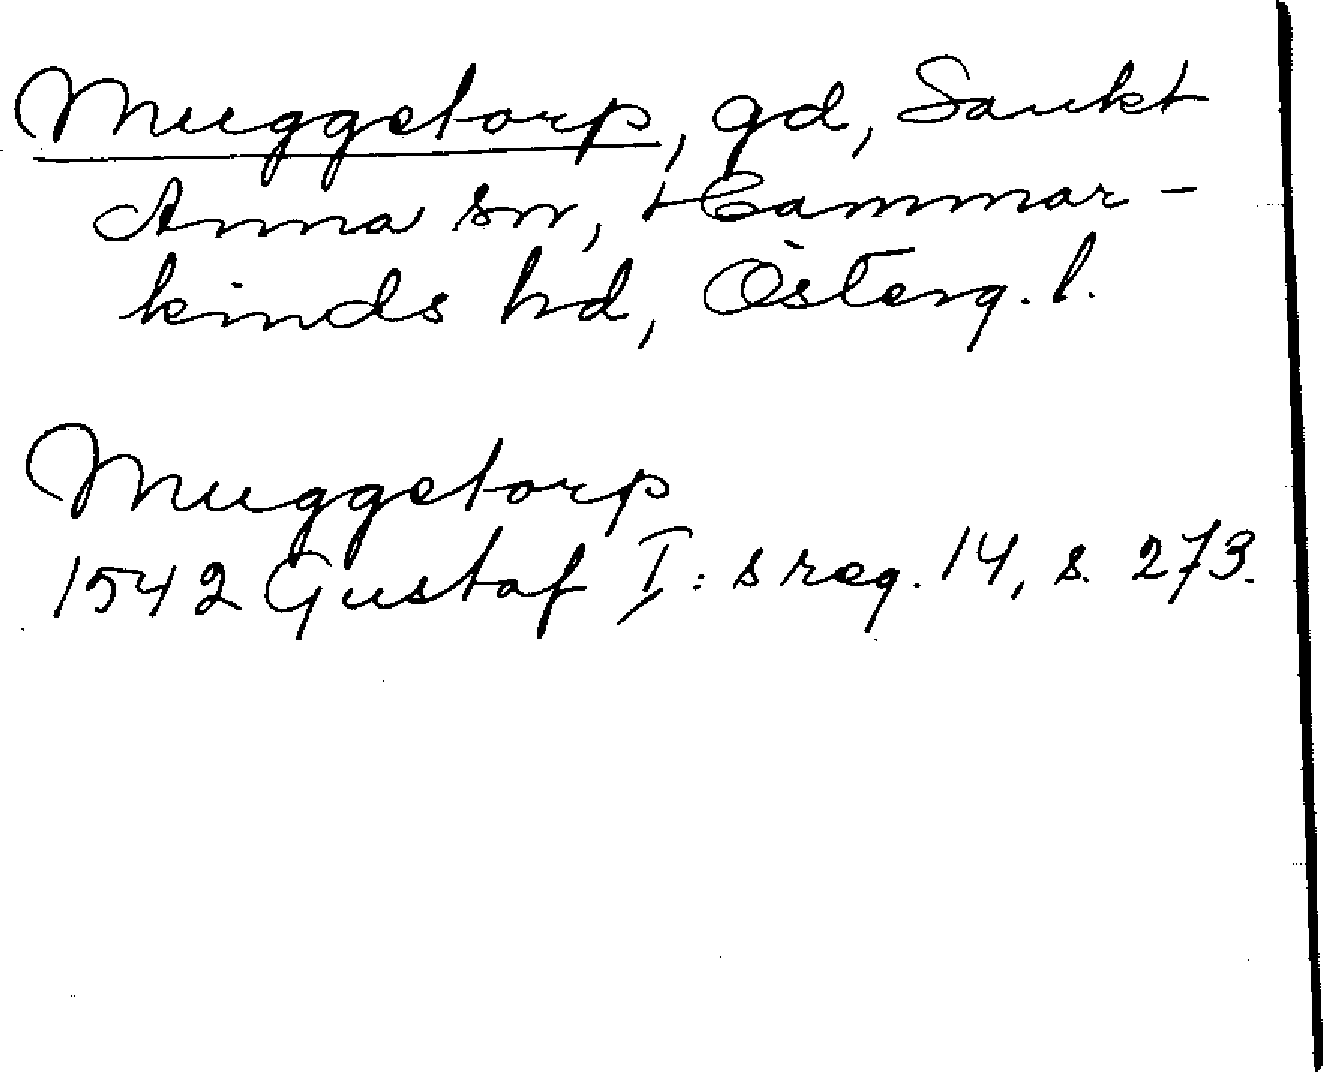 Muggetorp, gd, Sankt
Anna sn, Hammar-
kinds hd, Österg. l.
Muggetorp
1542 Gustaf I:s reg. 14, s. 273.